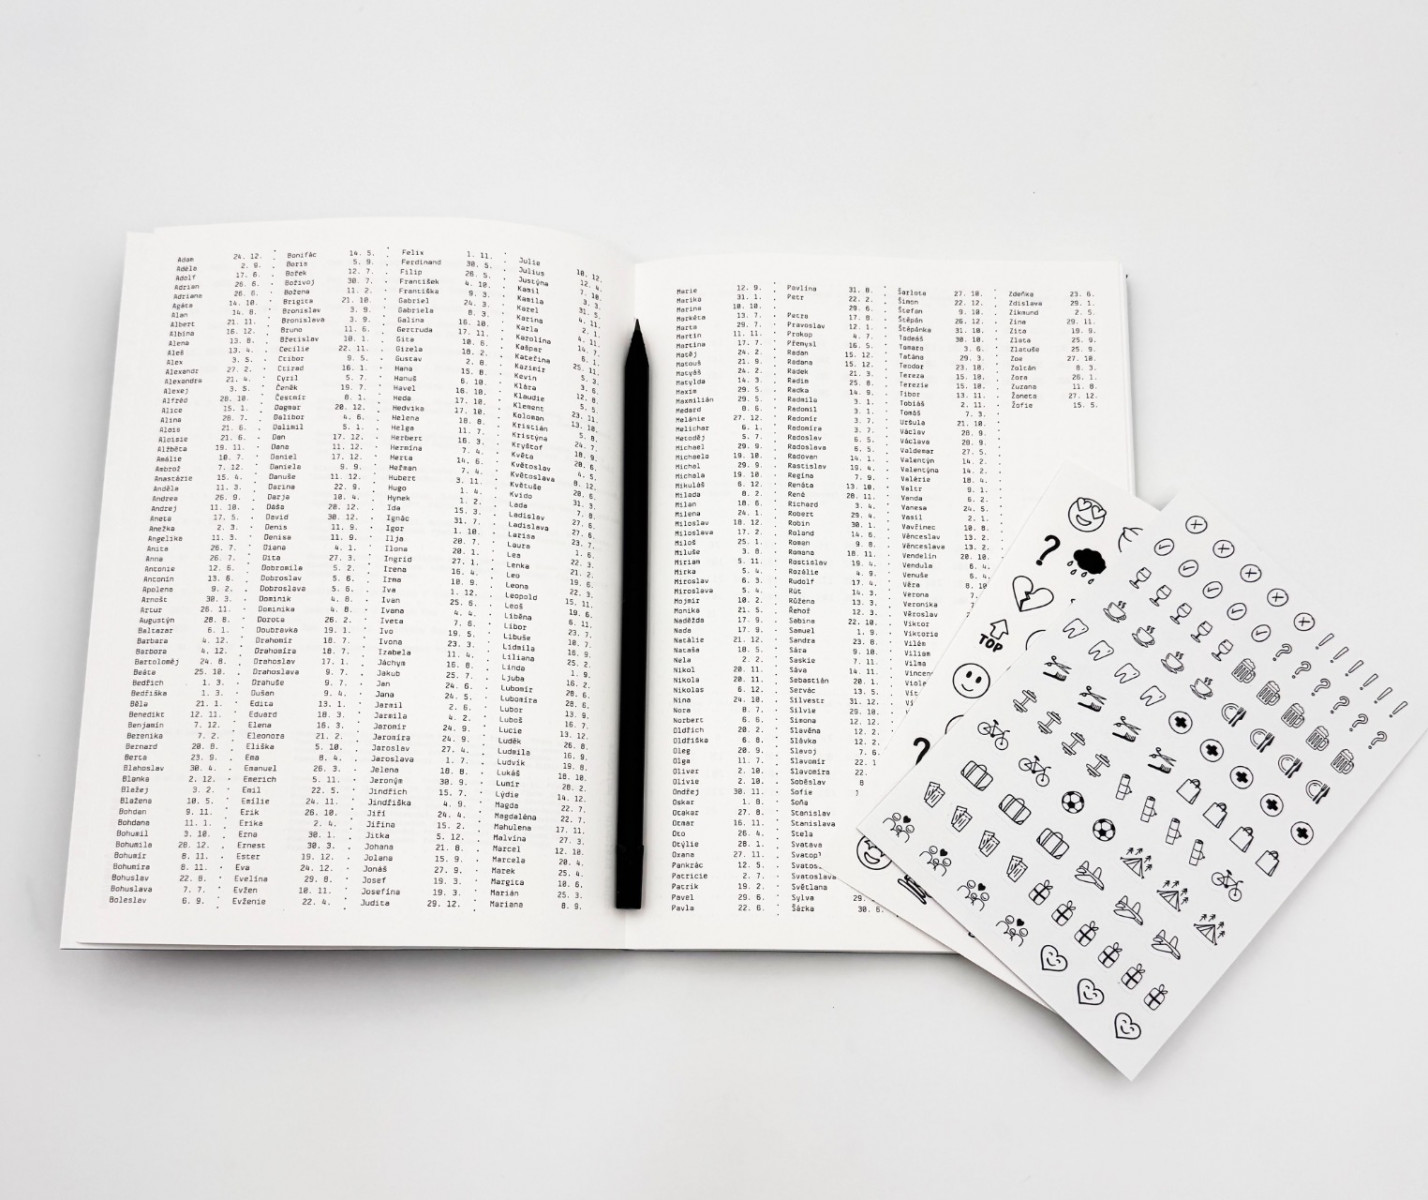 Adam 24. 12.
Adéla 2. 9.
Adolf 17. 6.
Adrian 26. 6.
Adriana 26. 6.
Agáta 14. 10.
Alan 14. 8.
Albert 21. 11.
Albína 16. 12.
Alena 13. 8.
Aleš 13. 4.
Alex 3. 5.
Alexandr 27. 2.
Alexandra 21. 4.
Alexej 3. 5.
Alfréd 28. 10.
Alice 15. 1.
Alina 28. 7.
Alois 21. 6.
Aloisie 21. 6.
Alžběta 19. 11.
Amálie 10. 7.
Ambrož 7. 12.
Anastázie 15. 4.
Anděla 11. 3.
Andrea 26. 9.
Andrej 11. 10.
Aneta 17. 5.
Anežka 2. 3.
Angelika 11. 3.
Anita 26. 7.
Anna 26. 7.
Antonie 12. 6.
Antonín 13. 6.
Apolena 9. 2.
Arnošt 30. 3.
Artur 26. 11.
Augustýn 28. 8.
Baltazar 6. 1.
Barbara 4. 12.
Barbora 4. 12.
Bartoloměj 24. 8.
Beáta 25. 10.
Bedřich 1. 3.
Bedřiška 1. 3.
Běla 21. 1.
Benedikt 12. 11.
Benjamín 7. 12.
Berenika 7. 2.
Bernard 20. 8.
Berta 23. 9.
Blahoslav 30. 4.
Blanka 2. 12.
Blažej 3. 2.
Blažena 10. 5.
Bohdan 9. 11.
Bohdana 11. 1.
Bohumil 3. 10.
Bohumila 28. 12.
Bohumír 8. 11.
Bohumíra 8. 11.
Bohuslav 22. 8.
Bohuslava 7. 7.
Boleslav 6. 9.
Bonifác 14. 5.
Boris 5. 9.
Božek 12. 7.
Bořivoj 30. 7.
Božena 11. 2.
Brigita 21. 10.
Bronislav 3. 9.
Bronislava 3. 9.
Bruno 11. 6.
Břetislav 10. 1.
Cecílie 22. 11.
Ctibor 9. 5.
Ctirad 16. 1.
Cyril 5. 7.
Čeněk 19. 7.
Čestmír 8. 1.
Dagmar 20. 12.
Dalibor 4. 6.
Dalimil 5. 1.
Dan 17. 12.
Dana 11. 12.
Daniel 17. 12.
Daniela 9. 9.
Danuše 11. 12.
Darina 22. 9.
Darja 10. 4.
Dáša 20. 12.
David 30. 12.
Denis 11. 9.
Denisa 11. 9.
Diana 4. 1.
Dita 27. 3.
Dobromila 5. 2.
Dobroslav 5. 6.
Dobroslava 5. 6.
Dominik 4. 8.
Dominika 4. 8.
Dorota 26. 2.
Doubravka 19. 1.
Drahomír 18. 7.
Drahomíra 18. 7.
Drahoslav 17. 1.
Drahoslava 9. 7.
Drahuše 9. 7.
Dušan 9. 4.
Edita 13. 1.
Eduard 18. 3.
Elena 16. 3.
Eleonora 21. 2.
Eliška 5. 10.
Ema 8. 4.
Emanuel 26. 3.
Emerich 5. 11.
Emil 22. 5.
Emílie 24. 11.
Erik 26. 10.
Erika 2. 4.
Erna 30. 1.
Ernest 30. 3.
Ester 19. 12.
Eva 24. 12.
Evelína 29. 8.
Evžen 10. 11.
Evženie 22. 4.
Felix 1. 11.
Ferdinand 30. 5.
Filip 26. 5.
František 4. 10.
Františka 9. 3.
Gabriel 24. 3.
Gabriela 8. 3.
Galina 16. 10.
Gertruda 17. 11.
Gita 10. 6.
Gizela 18. 2.
Gustav 2. 8.
Hana 15. 8.
Hanuš 6. 10.
Havel 16. 10.
Heda 17. 10.
Hedvika 17. 10.
Helena 18. 8.
Helga 11. 7.
Herbert 16. 3.
Hermína 7. 4.
Herta 14. 6.
Heřman 7. 4.
Hubert 3. 11.
Hugo 1. 4.
Hynek 1. 2.
Ida 15. 3.
Ignác 31. 7.
Igor 1. 10.
Ilja 20. 7.
Ilona 20. 1.
Ingrid 27. 1.
Irena 16. 4.
Irma 10. 9.
Iva 1. 12.
Ivan 25. 6.
Ivana 4. 4.
Iveta 7. 6.
Ivo 19. 5.
Ivona 23. 3.
Izabela 11. 4.
Jáchym 16. 8.
Jakub 25. 7.
Jan 24. 6.
Jana 24. 5.
Jarmil 2. 6.
Jarmila 4. 2.
Jaromír 24. 9.
Jaromíra 24. 9.
Jaroslav 27. 4.
Jaroslava 1. 7.
Jelena 18. 8.
Jeroným 30. 9.
Jindřich 15. 7.
Jindřiška 4. 9.
Jiří 24. 4.
Jiřina 15. 2.
Jitka 5. 12.
Johana 21. 8.
Jolana 15. 9.
Jonáš 27. 9.
Josef 19. 3.
Josefína 19. 3.
Judita 29. 12.
Julie 10. 12.
Julius 12. 4.
Justýna 7. 10.
Kamil 3. 3.
Kamila 31. 5.
Karel 4. 11.
Karina 2. 1.
Karla 4. 11.
Karolína 14. 7.
Kašpar 6. 1.
Kateřina 25. 11.
Kazimír 5. 3.
Kevin 3. 6.
Klára 12. 8.
Klaudie 5. 5.
Klement 23. 11.
Koloman 13. 10.
Kristián 5. 8.
Kristýna 24. 7.
Kryštof 18. 9.
Květa 20. 6.
Květoslav 4. 5.
Květoslava 8. 12.
Květuše 20. 6.
Kvido 31. 3.
Lada 7. 8.
Ladislav 27. 6.
Ladislava 27. 6.
Larisa 23. 7.
Laura 1. 6.
Lea 22. 3.
Lenka 21. 2.
Leo 19. 6.
Leona 22. 3.
Leopold 15. 11.
Leoš 19. 6.
Liběna 6. 11.
Libor 23. 7.
Libuše 10. 7.
Lidmila 16. 9.
Liliana 25. 2.
Linda 1. 9.
Ljuba 16. 2.
Lubomír 28. 6.
Lubomíra 28. 6.
Lubor 13. 9.
Luboš 16. 7.
Lucie 13. 12.
Luděk 26. 8.
Ludmila 16. 9.
Ludvík 19. 8.
Lukáš 18. 10.
Lumír 28. 2.
Lýdie 14. 12.
Magda 22. 7.
Magdaléna 22. 7.
Mahulena 17. 11.
Malvína 27. 3.
Marcel 12. 10.
Marcela 20. 4.
Marek 25. 4.
Margita 10. 6.
Marián 25. 3.
Mariana 8. 9.
Marie 12. 9.
Marika 31. 1.
Marina 10. 10.
Markéta 13. 7.
Marta 29. 7.
Martin 11. 11.
Martina 17. 7.
Matěj 24. 2.
Matouš 21. 9.
Matyáš 24. 2.
Matylda 14. 3.
Maxim 29. 5.
Maxmilián 29. 5.
Medard 8. 6.
Melánie 27. 12.
Melichar 6. 1.
Metoděj 5. 7.
Michael 29. 9.
Michaela 19. 10.
Michal 29. 9.
Michala 19. 10.
Mikuláš 6. 12.
Milada 8. 2.
Milan 18. 6.
Milena 24. 1.
Miloslav 18. 12.
Miloslava 17. 2.
Miloš 25. 1.
Miluše 3. 8.
Miriam 5. 11.
Mirka 5. 4.
Miroslav 6. 3.
Miroslava 5. 4.
Mojmír 10. 2.
Monika 21. 5.
Naděžda 17. 9.
Naďa 17. 9.
Natálie 21. 12.
Nataša 18. 5.
Nela 2. 2.
Nikol 20. 11.
Nikola 20. 11.
Nikolas 6. 12.
Nina 24. 10.
Nora 8. 7.
Norbert 6. 6.
Oldřich 20. 2.
Oldřiška 6. 8.
Oleg 20. 9.
Olga 11. 7.
Oliver 2. 10.
Olivie 2. 10.
Ondřej 30. 11.
Oskar 1. 8.
Otakar 27. 8.
Otmar 16. 11.
Oto 26. 4.
Otýlie 28. 1.
Oxana 27. 11.
Pankrác 12. 5.
Patricie 2. 7.
Patrik 19. 2.
Pavel 29. 6.
Pavla 22. 6.
Pavlína 31. 8.
Petr 22. 2.
29. 6.
Petra 17. 8.
Pravoslav 12. 1.
Prokop 4. 7.
Přemysl 16. 5.
Radan 14. 1.
Radana 15. 12.
Radek 21. 3.
Radim 25. 8.
Radka 14. 9.
Radmila 3. 1.
Radomil 3. 1.
Radomír 3. 7.
Radomíra 3. 7.
Radoslav 6. 5.
Radoslava 6. 5.
Radovan 14. 1.
Rastislav 19. 4.
Regína 7. 9.
Renáta 13. 10.
René 28. 11.
Richard 3. 4.
Robert 29. 4.
Robin 30. 1.
Roland 14. 6.
Roman 9. 8.
Romana 18. 11.
Rostislav 19. 4.
Rozálie 4. 9.
Rudolf 17. 4.
Rút 14. 3.
Růžena 13. 3.
Řehoř 12. 3.
Sabina 22. 10.
Samuel 1. 9.
Sandra 23. 8.
Sára 9. 10.
Saskie 7. 11.
Sáva 14. 11.
Sebastián 20. 1.
Servác 13. 5.
Silvestr 31. 12.
Silvie 29. 10.
Simona 12. 12.
Slavěna 12. 2.
Slávka 12. 2.
Slavoj 7. 6.
Slavomír 22. 1
Slavomíra 22.
Soběslav 8
Sofie
Soňa
Stanislav
Stanislava
Stela
Svatava
Svatop
Svatos
Svatoslava
Světlana
Sylva 29.
Šárka 30. 6.
Šarlota 27. 10.
Šimon 22. 12.
Štefan 9. 10.
Štěpán 26. 12.
Štěpánka 31. 10.
Tadeáš 30. 10.
Tamara 3. 6.
Taťána 29. 3.
Teodor 23. 10.
Tereza 15. 10.
Terezie 15. 10.
Tibor 13. 11.
Tobiáš 2. 11.
Tomáš 7. 3.
Uršula 21. 10.
Václav 28. 9.
Václava 28. 9.
Valdemar 27. 5.
Valentýn 14. 2.
Valentýna 14. 2.
Valérie 18. 4.
Valtr 9. 1.
Vanda 6. 2.
Vanesa 24. 5.
Vasil 2. 1.
Vavřinec 10. 8.
Věnceslav 13. 2.
Věnceslava 13. 2.
Vendelín 20. 10.
Vendula 6. 4.
Venuše 6. 4.
Věra 8. 10
Verona 7.
Veronika 7.
Věroslav
Viktor
Viktorie
Vilém
Viliam
Vilma
Vincen
Viole
Vít
Zdeňka 23. 6.
Zdislava 29. 1.
Zikmund 2. 5.
Zina 29. 11.
Zita 19. 9.
Zlata 25. 9.
Zlatuše 25. 9.
Zoe 27. 10.
Zoltán 8. 3.
Zora 26. 1.
Zuzana 11. 8.
Žaneta 27. 12.
Žofie 15. 5.
TOP